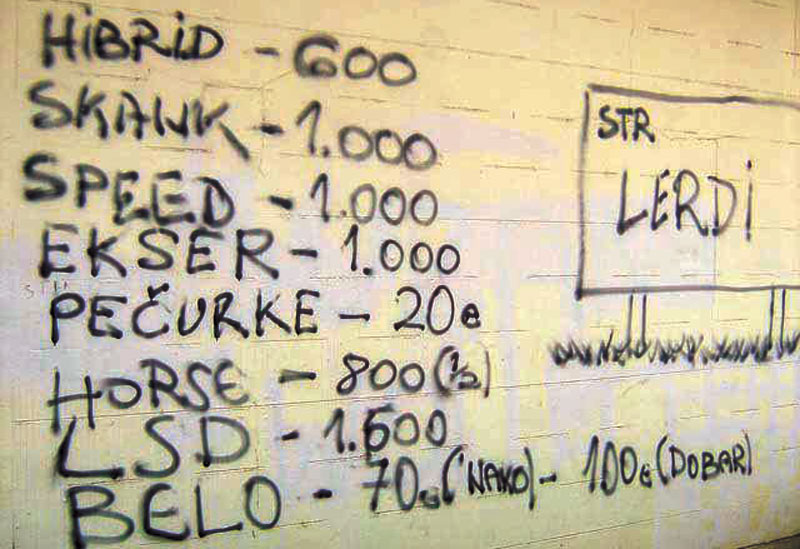 HiBRiD - 600
SKANK - 1.000
SPEED - 1.000
EKSER - 1.000
PEČURKE - 20e
HORSE - 800 (½)
LSD - 1.600
BELO - 70e ('NAKO) - 100e (DOBAR)
STR
LERDi